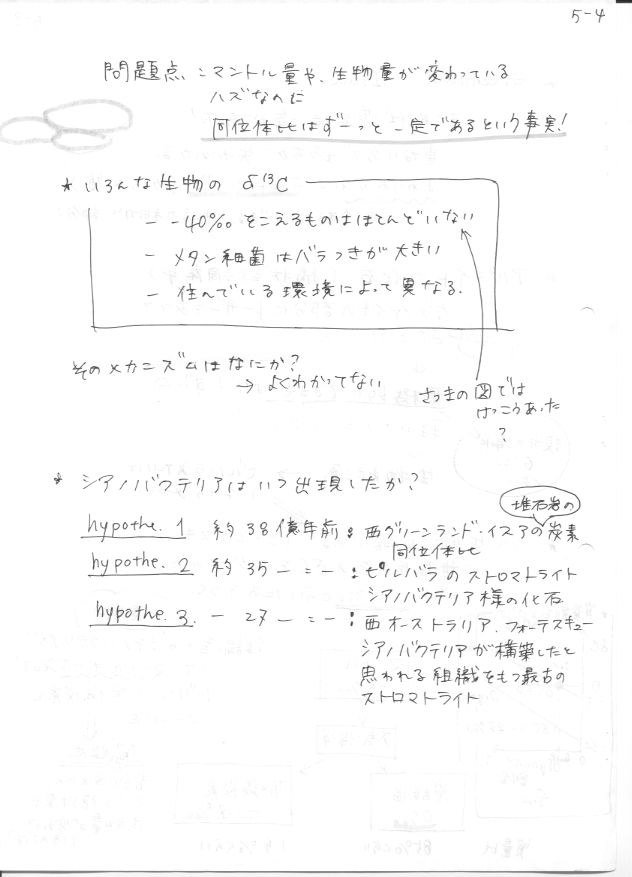 5-4
問題点:マントル量や、生物量が変わっている
ハズなのに
同位体比はずーっと一定であるという事実!
* いろんな生物の δ13C
- -40‰をこえるものはほとんどいない
- メタン細菌はバラつきが大きい
- 住んでいる環境によって異なる.
そのメカニズムはなにか?
→ よくわかってない
さっきの図では
けっこうあった
?
* シアノバクテリアはいつ出現したか?
堆石岩の
hypothe. 1 約38億年前:西グリーンランド.イスアの炭素
同位体比
hypothe. 2 約35 — 〃 —:ピルバラのストロマトライト
シアノバクテリア様の化石
hypothe. 3. — 27 — 〃 —:西オーストラリア.フォーテスキュー
シアノバクテリアが構築したと
思われる組織をもつ最古の
ストロマトライト